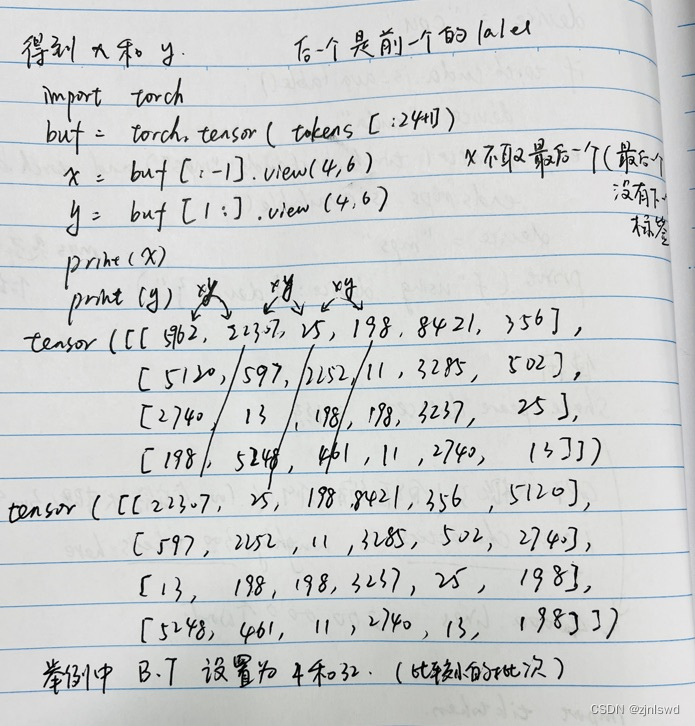 得到 x 和 y. 后一个是前一个的 label
import torch
buf = torch.tensor ( tokens [ :24+1])
x = buf [ :-1].view(4,6) x 不取最后一个(最后个
y = buf [1:].view(4,6) 没有下一
标签
print(x)
print(y) xy xy xy
tensor ([[ 5962, 22307, 25, 198, 8421, 356],
[ 5120, 597, 2252, 11, 3285, 502],
[2740, 13, 198, 198, 3237, 25],
[198, 5248, 461, 11, 2740, 13]])
tensor ([[22307, 25, 198 8421, 356, 5120],
[597, 2252, 11, 3285, 502, 2740],
[13, 198, 198, 3237, 25, 198],
[5248, 461, 11, 2740, 13, 198]])
举例中 B.T 设置为 4和32. (比较小的批次)
CSDN @zjnlswd